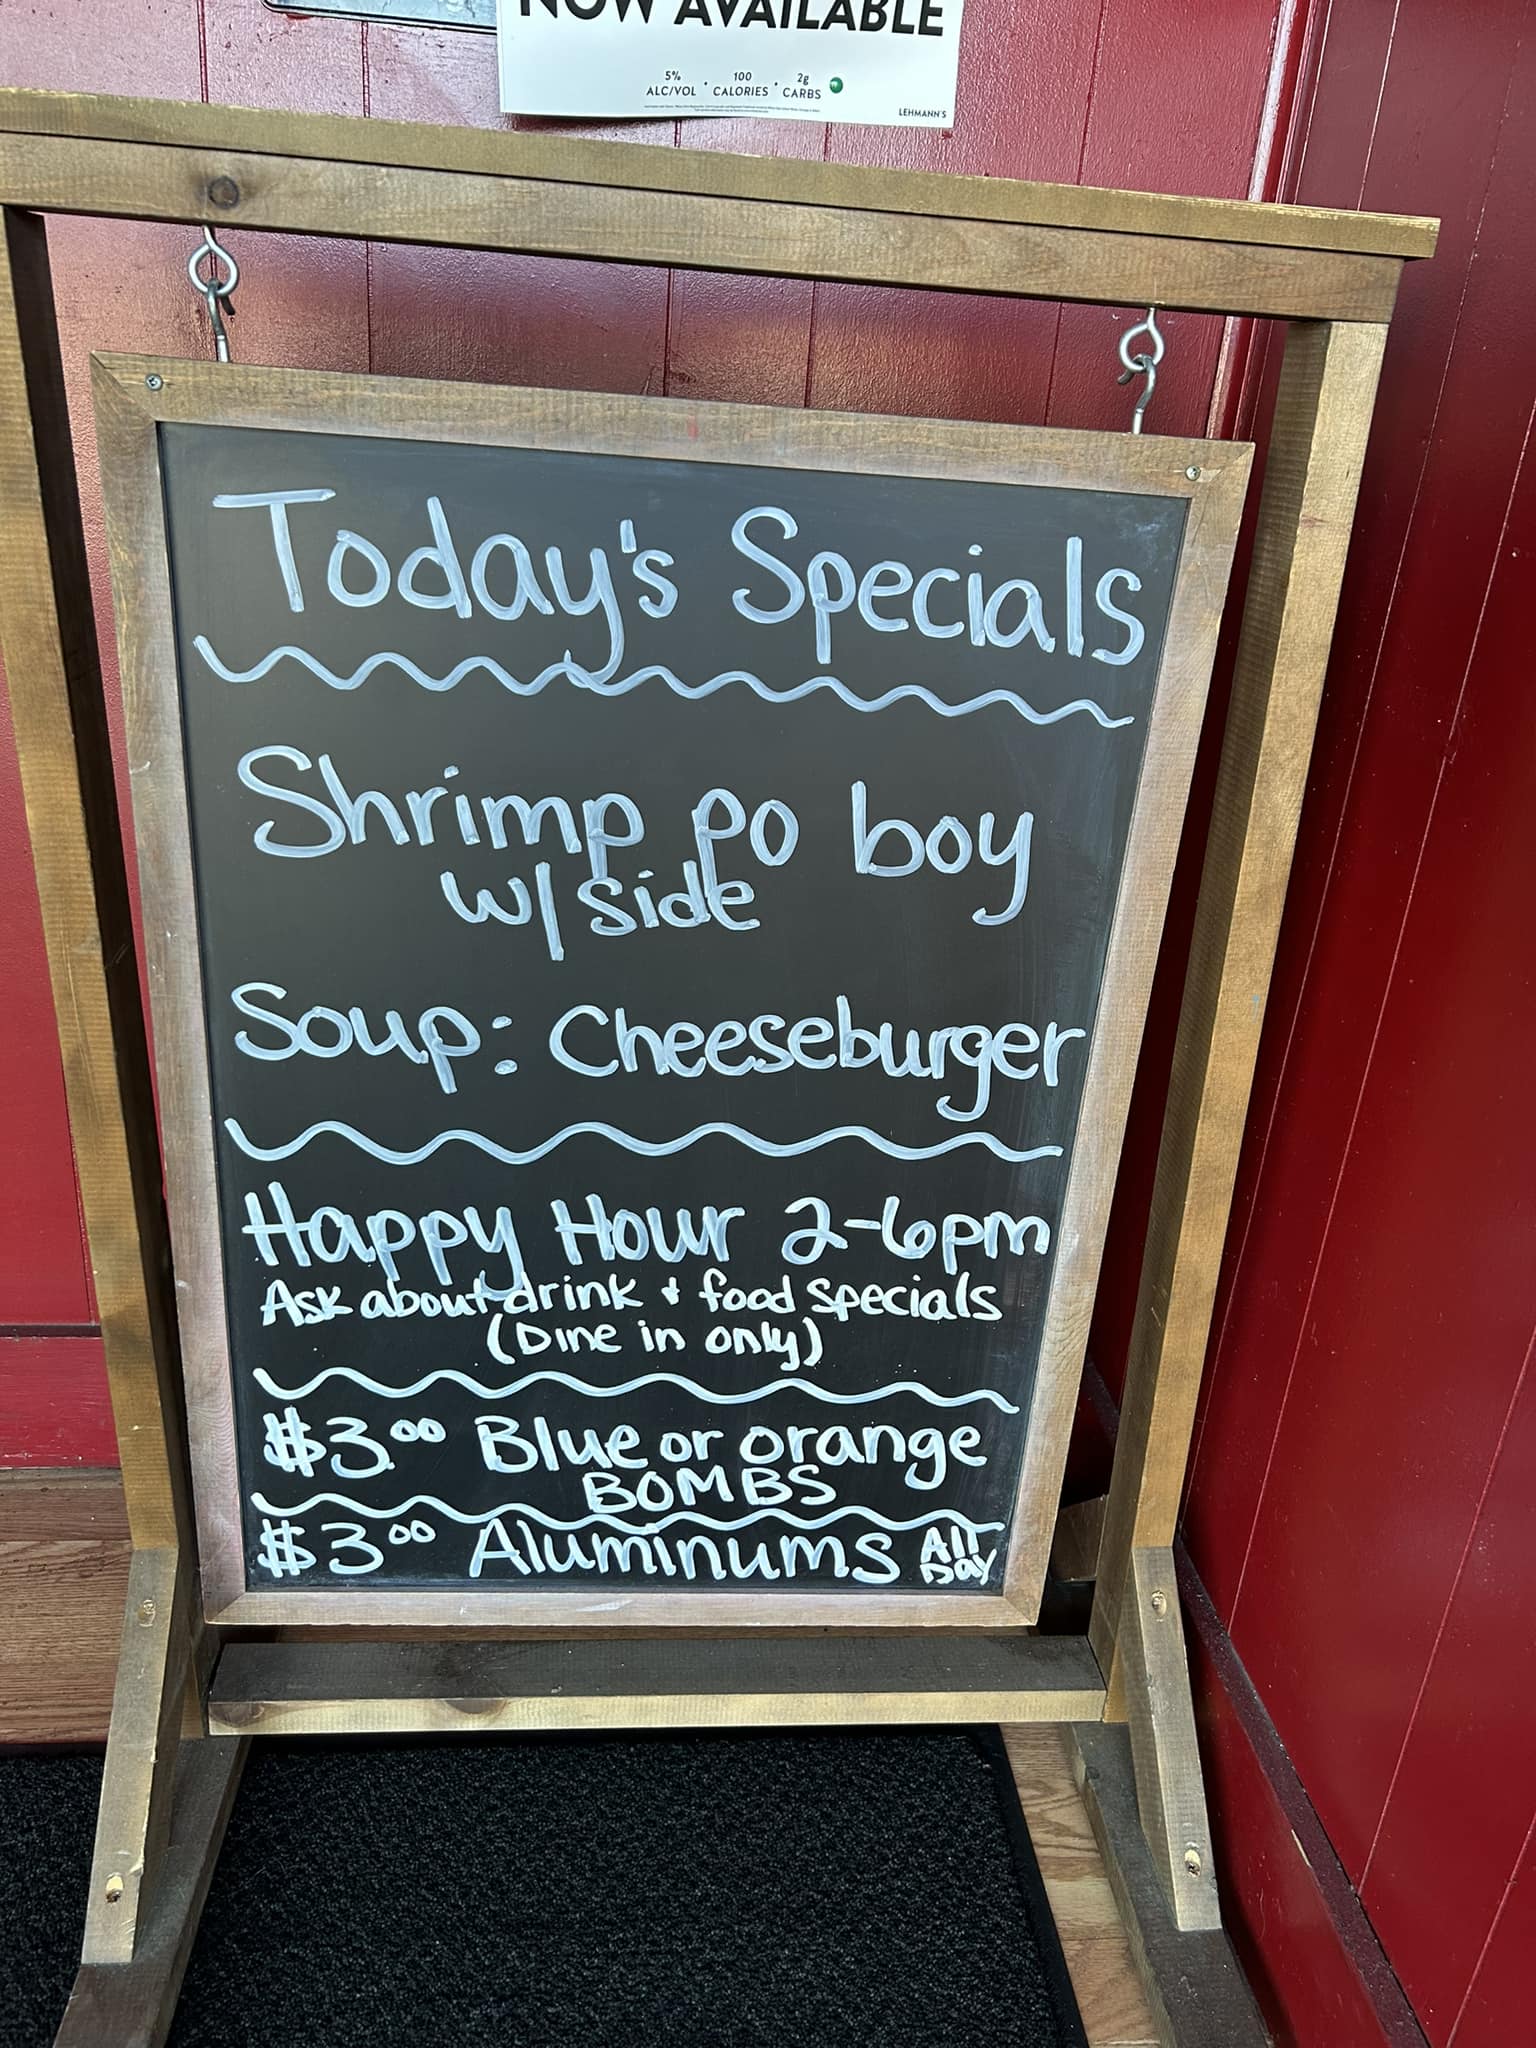 NOW AVAILABLE
5% ALC/VOL • 100 CALORIES • 2g CARBS
LEHMANN'S
Today's Specials
Shrimp po boy
w/ side
Soup: Cheeseburger
Happy Hour 2-6pm
Ask about drink & food specials
(Dine in only)
$3.00 Blue or orange
BOMBS
$3.00 Aluminums All Day